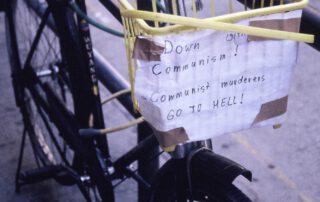 Down with
Communism !
Communist murderers
GO TO HELL!